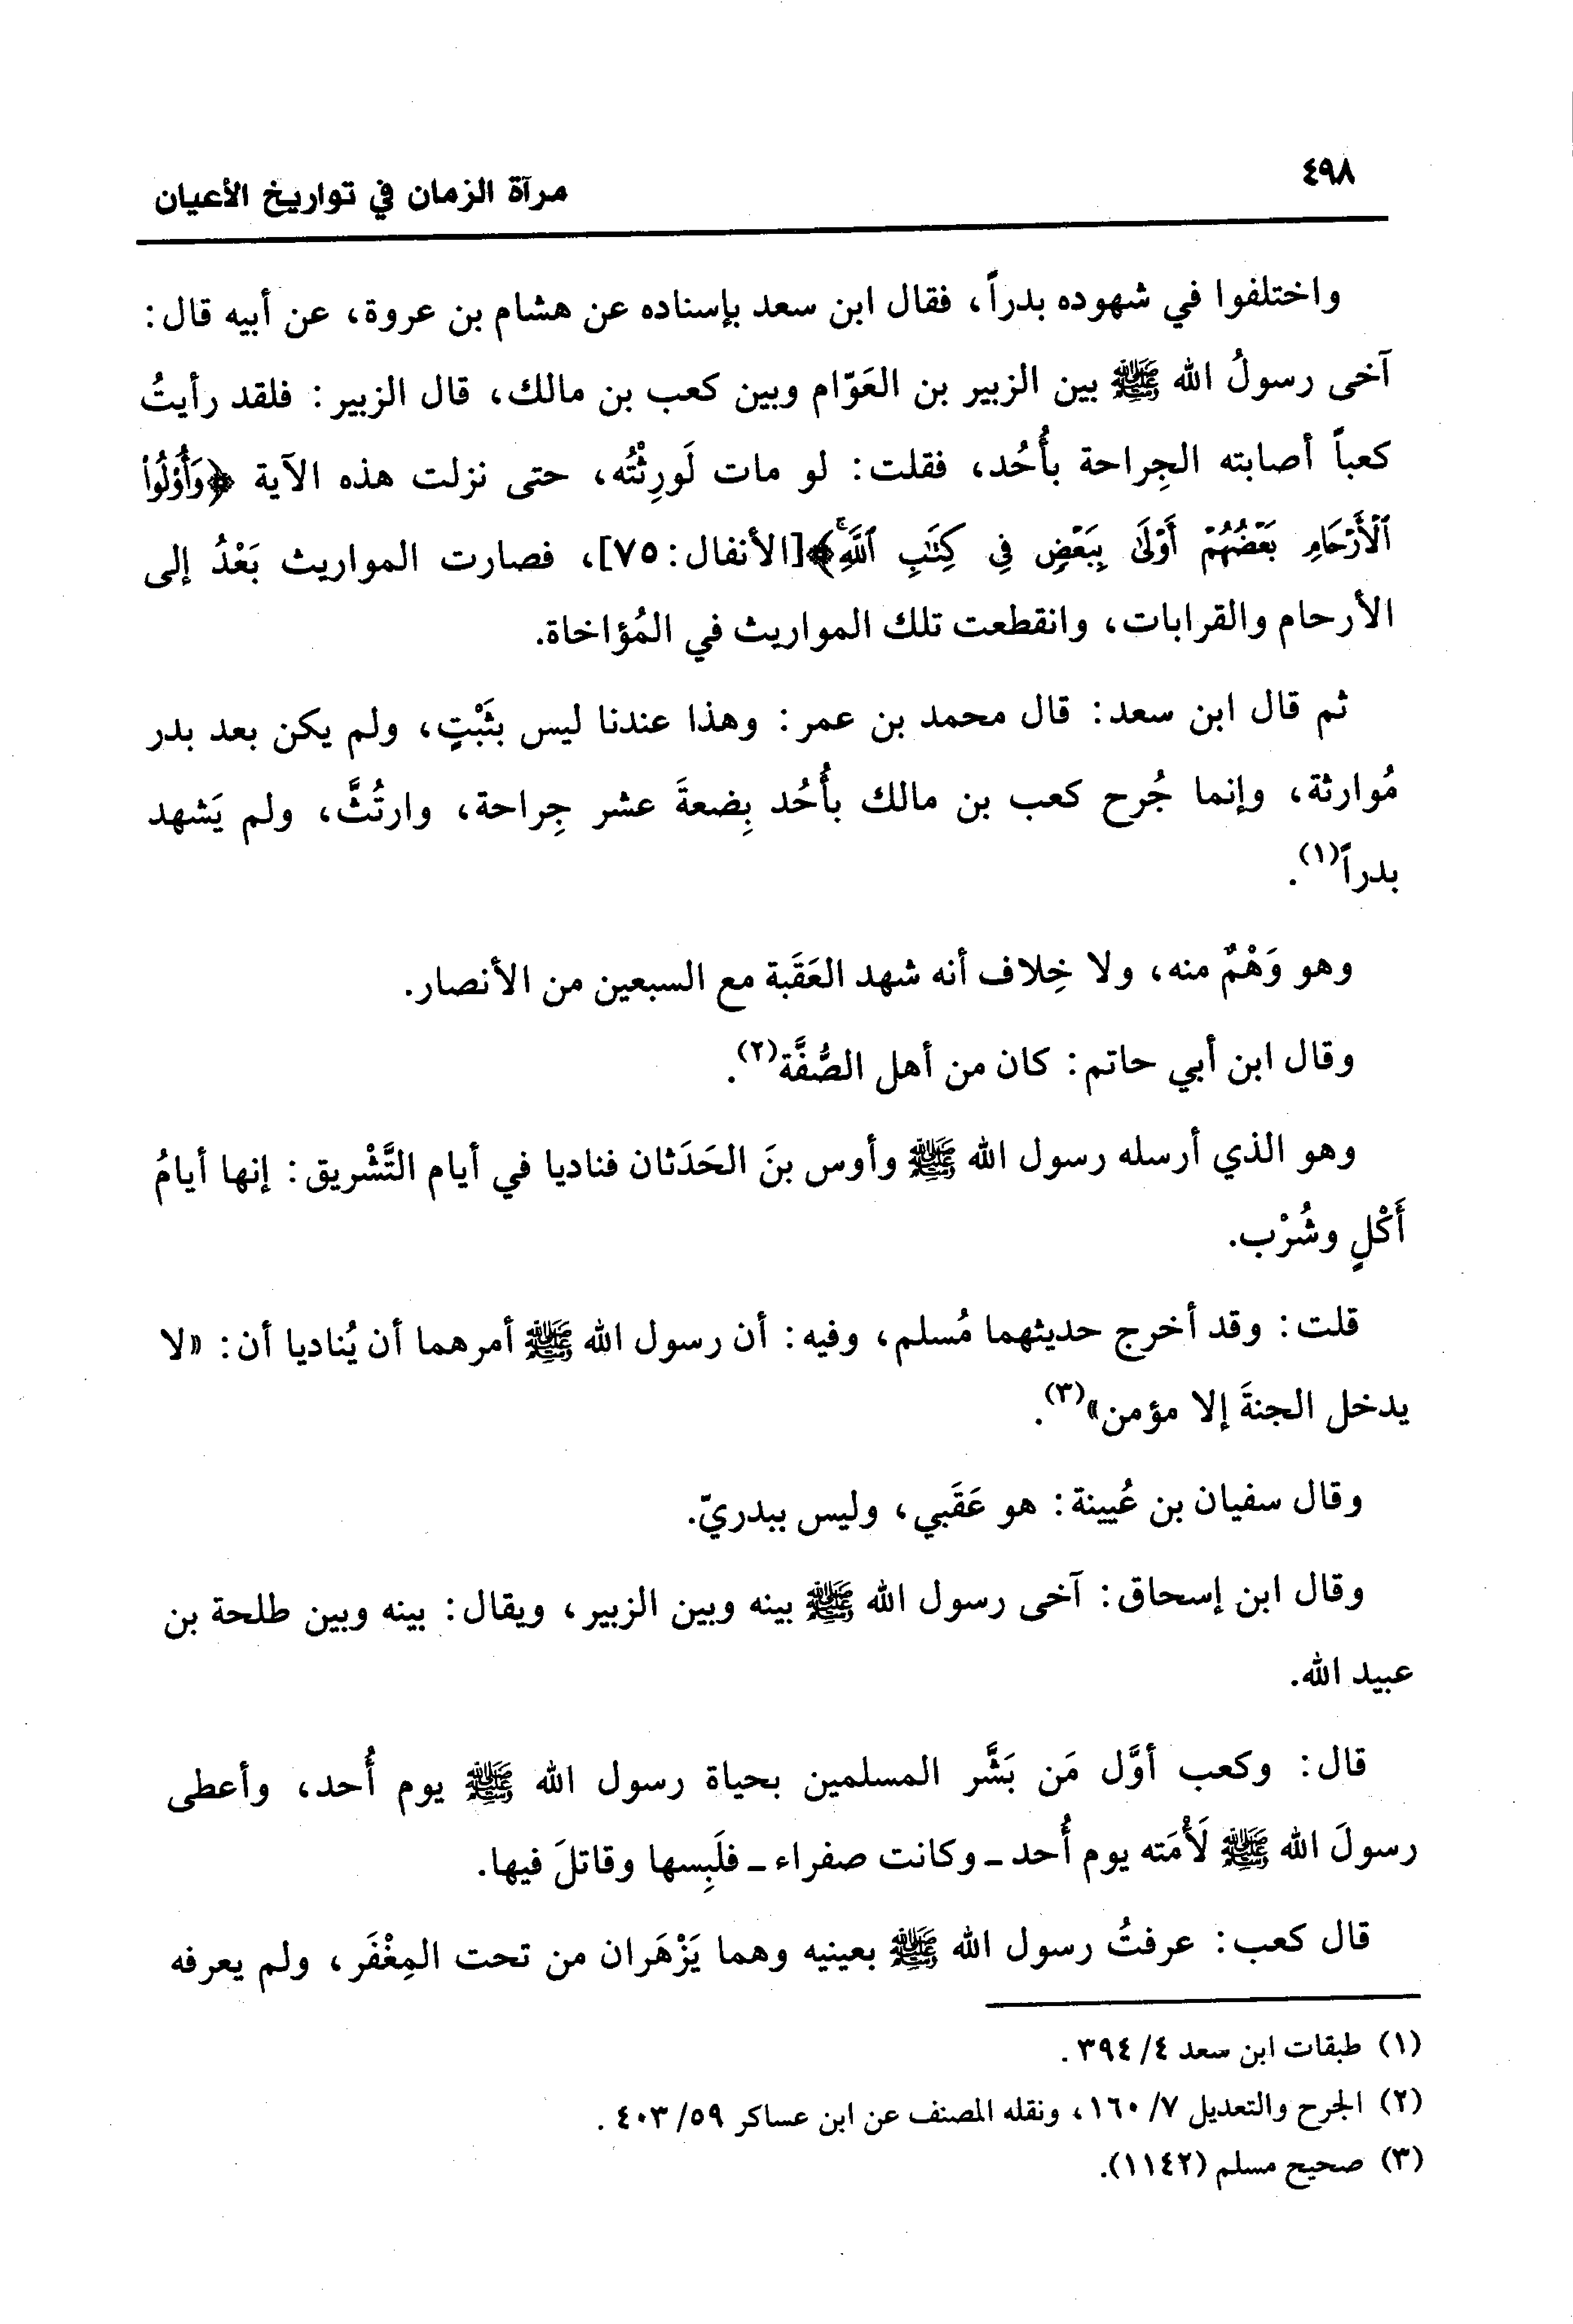 ٤٩٨
مرآة الزمان في تواريخ الأعيان
واختلفوا في شهوده بدراً، فقال ابن سعد بإسناده عن هشام بن عروة، عن أبيه قال:
آخى رسولُ الله ﷺ بين الزبير بن العَوّام وبين كعب بن مالك، قال الزبير: فلقد رأيتُ
كعباً أصابته الجِراحة بأُحُد، فقلت: لو مات لَورِثْتُه، حتى نزلت هذه الآية ﴿وَأُوْلُواْ
ٱلْأَرْحَامِ بَعْضُهُمْ أَوْلَىٰ بِبَعْضٍ فِي كِتَٰبِ ٱللَّهِۚ﴾[الأنفال: ٧٥]، فصارت المواريث بَعْدُ إلى
الأرحام والقرابات، وانقطعت تلك المواريث في المُؤاخاة.
ثم قال ابن سعد: قال محمد بن عمر: وهذا عندنا ليس بثَبْتٍ، ولم يكن بعد بدر
مُوارثة، وإنما جُرح كعب بن مالك بأُحُد بِضعةَ عشر جِراحة، وارتُثَّ، ولم يَشهد
بدراً(١).
وهو وَهْمٌ منه، ولا خِلاف أنه شهد العَقَبة مع السبعين من الأنصار.
وقال ابن أبي حاتم: كان من أهل الصُّفَّة(٢).
وهو الذي أرسله رسول الله ﷺ وأوس بنَ الحَدَثان فناديا في أيام التَّشْريق: إنها أيامُ
أَكْلٍ وشُرْب.
قلت: وقد أخرج حديثهما مُسلم، وفيه: أن رسول الله ﷺ أمرهما أن يُناديا أن: «لا
يدخل الجنةَ إلا مؤمن»(٣).
وقال سفيان بن عُيينة: هو عَقَبي، وليس ببدريّ.
وقال ابن إسحاق: آخى رسول الله ﷺ بينه وبين الزبير، ويقال: بينه وبين طلحة بن
عبيد الله.
قال: وكعب أوَّل مَن بَشَّر المسلمين بحياة رسول الله ﷺ يوم أُحد، وأعطى
رسولَ الله ﷺ لَأْمَته يوم أُحد ـ وكانت صفراء ـ فلَبِسها وقاتلَ فيها.
قال كعب: عرفتُ رسول الله ﷺ بعينيه وهما يَزْهَران من تحت المِغْفَر، ولم يعرفه
(١) طبقات ابن سعد ٤/ ٣٩٤.
(٢) الجرح والتعديل ٧/ ١٦٠، ونقله المصنف عن ابن عساكر ٥٩/ ٤٠٣.
(٣) صحيح مسلم (١١٤٢).